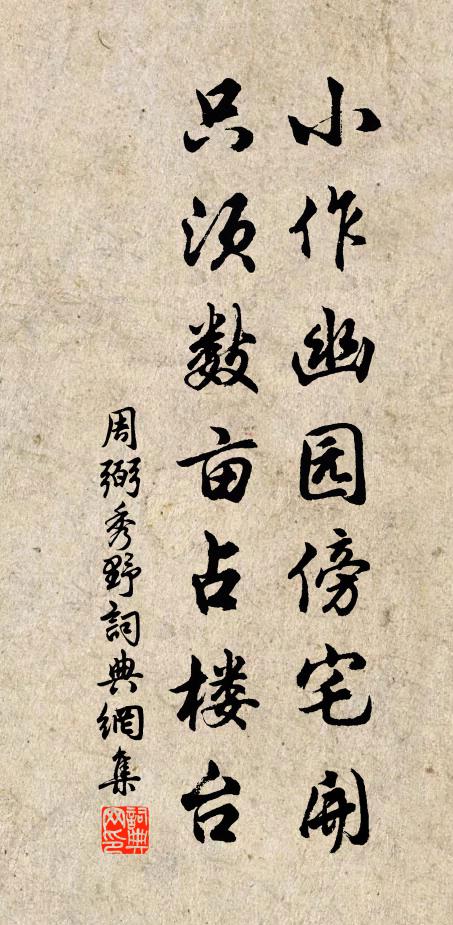 小作幽园傍宅开
只须数亩占楼台
周弼秀野詞典網集
詞典
网印